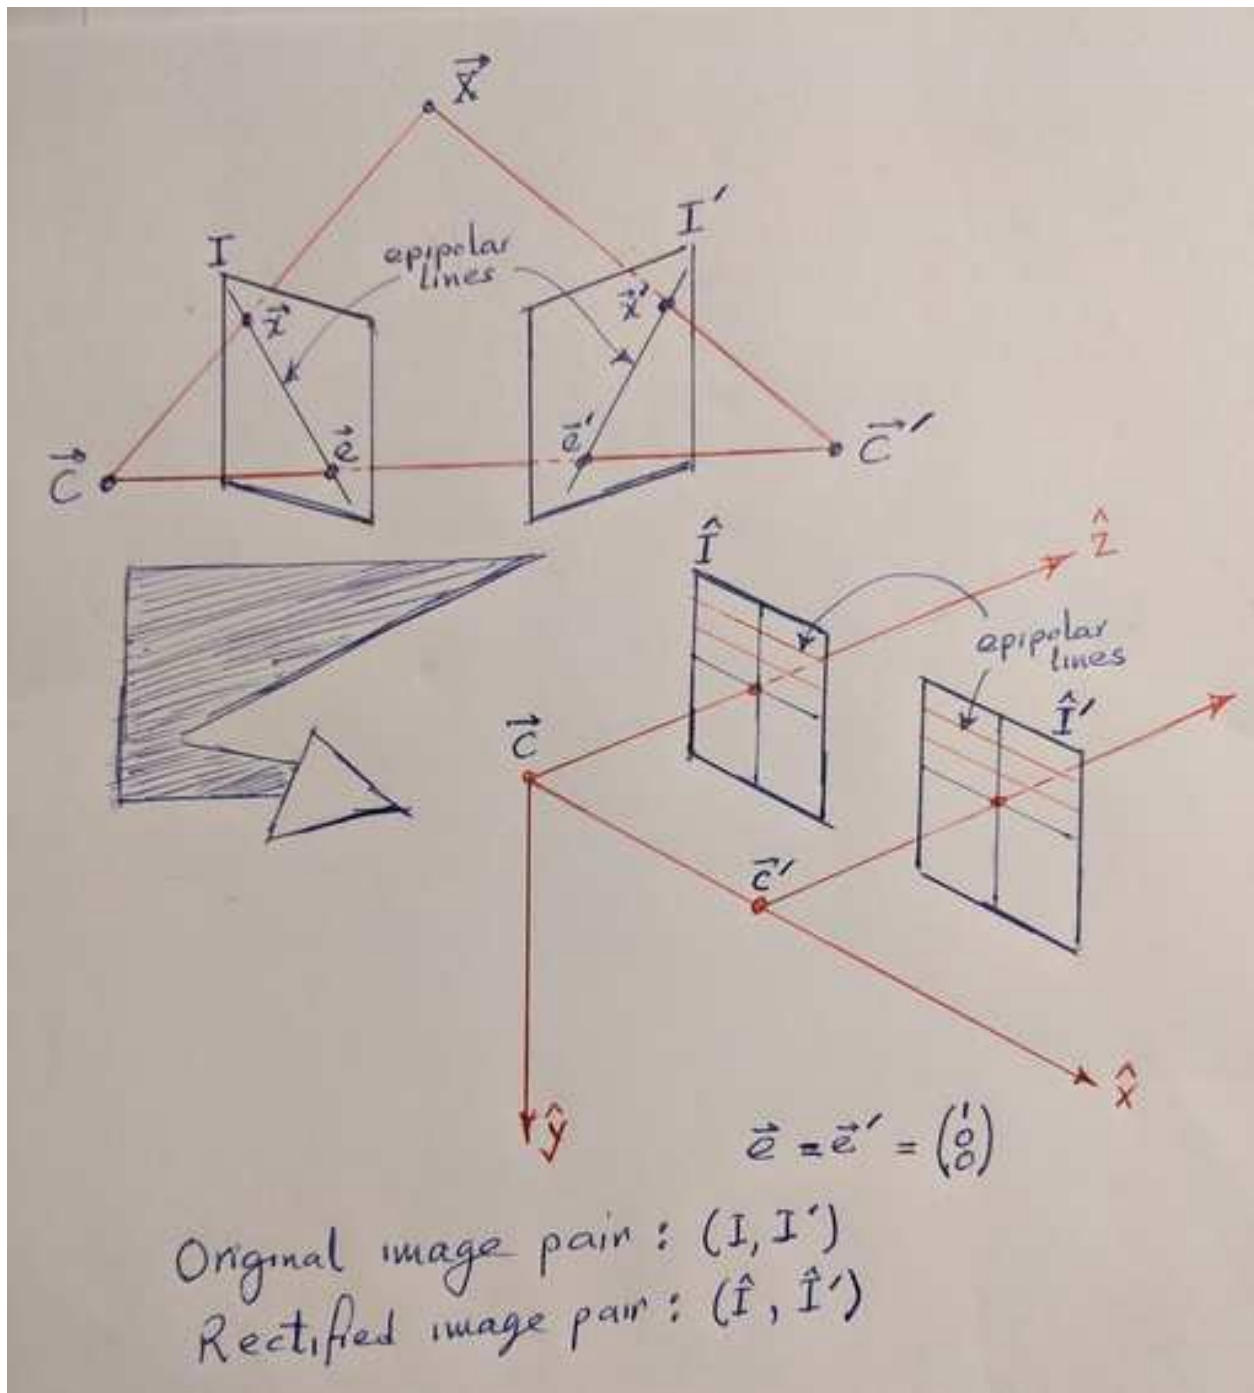 X⃗
I
I′
epipolar
lines
x⃗
x⃗′
e⃗
e⃗′
C⃗
C⃗′
Î
ẑ
epipolar
lines
Î′
C⃗
c⃗′
x̂
ŷ
e⃗ = e⃗′ = (1 0 0)
Original image pair : (I, I′)
Rectified image pair : (Î, Î′)